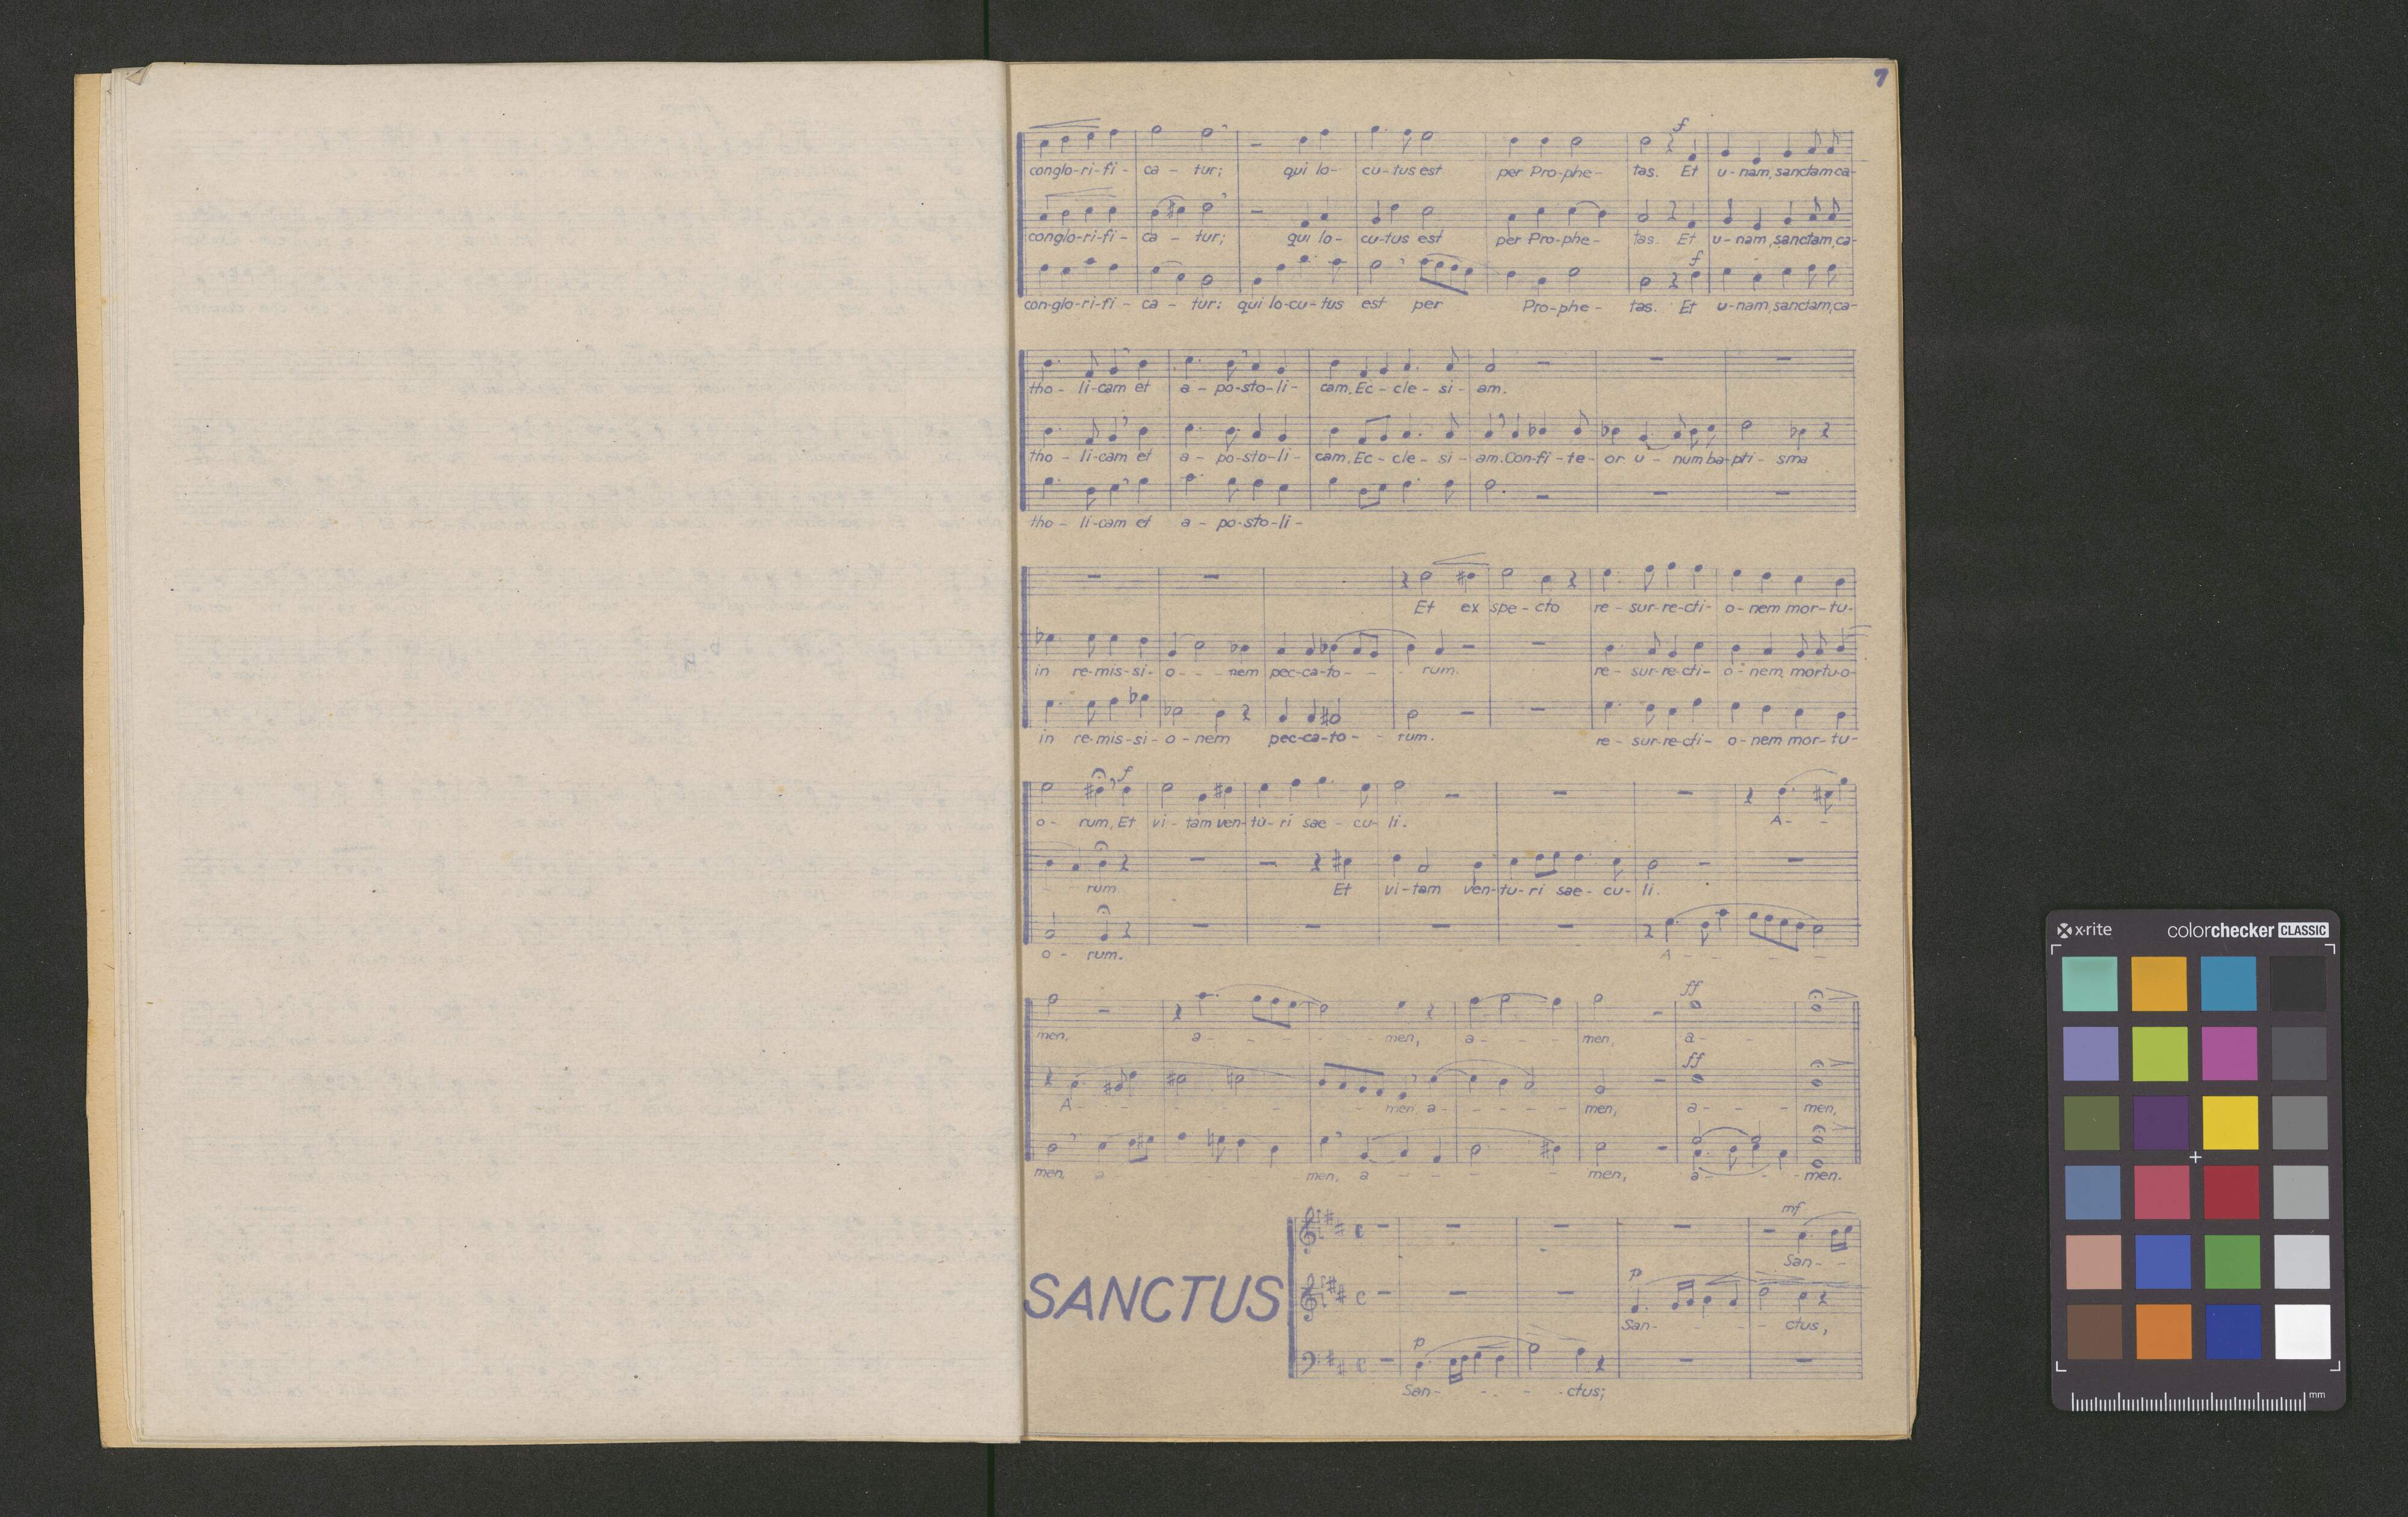 7
f
conglo-ri-fi- ca - tur; qui lo- cu-tus est per Pro-phe- tas. Et u-nam, sanctam ca-
conglo-ri-fi- ca - tur; qui lo- cu-tus est per Pro-phe- tas. Et u-nam, sanctam, ca-
f
con-glo-ri-fi- ca - tur: qui lo-cu-tus est per Pro-phe- tas. Et u-nam, sanctam, ca-
tho- li-cam et a - po-sto-li- cam. Ec-cle-si-am.
tho- li-cam et a - po-sto-li- cam. Ec-cle-si-am. Con-fi-te-or u-num ba-pti-sma
tho- li-cam et a - po-sto-li-
Et ex spe-cto re-sur-re-cti-o-nem mor-tu-
in re-mis-si-o- - - nem pec-ca-to- - - rum. re-sur-re-cti-o-nem mortu-o-
in re-mis-si-o-nem pec-ca-to- - rum. re-sur-re-cti-o-nem mor-tu-
f
o- rum, Et vi-tam ven-tu-ri sae-cu-li. A- -
rum. Et vi-tam ven-tu-ri sae-cu-li.
o- rum. A- - - -
ff
men, a- - - - - - men, a- - - men, a- -
ff
A- - - - - - - men, a- - - - - men, a- - - men,
men, a - - - - men, a - - - - men, a- - - men.
mf
San- -
p
SANCTUS San- - - - ctus,
p
San- - - - ctus;
x·rite colorchecker CLASSIC
mm